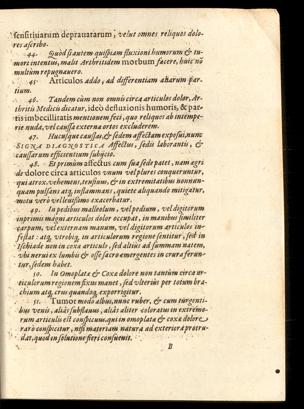 sensitiuarum deprauatarum, velut omnes reliquos dolo-
res ascribo.
44. Quod si autem quispiam fluxioni humorum & tu-
mori intentus, malit Arthritidem morbum facere, huic nō
multùm repugnauero.
45. Articulos addo, ad differentiam aliarum par-
tium.
46. Tandem cùm non omnis circa articulos dolor, Ar-
thritis Medicis dicatur, ideò defluxionis humoris, & par-
tis imbecillitatis mentionem feci, quo reliquos ab intempe-
rie nuda, vel caussa externa ortos excluderem.
47. Hucusque causas, & sedem affectam exposui, nunc
SIGNA DIAGNOSTICA Affectus, sedis laborantis, &
caussarum efficientium subijcio.
48. Et primùm affectus cum sua sede patet, nam ægri
de dolore circa articulos vnum vel plures conqueruntur,
qui atrox, vehemens, tensiuus, & in extremitatibus nonnun-
quam pulsans atq; inflammans, quiete aliquando mitigatur,
motu verò vel leuissimo exacerbatur.
49. In pedibus malleolum, vel pedium, vel digitorum
inprimis magni articulos dolor occupat, in manibus similiter
carpum, vel externam manum, vel digitorum articulos in-
festat: atq; vtrobiq; in articulorum regione sentitur, sed in
ischiade non in coxa articulo, sed altius ad summam natem,
vbi nerui ex lumbis & osse sacro emergentes in crura ferun-
tur, sedem habet.
50. In Omoplata & Coxa dolore non tantùm circa ar-
ticulorum regionem fixus manet, sed vlteriùs per totum bra-
chium atq; crus quandoq; exporrigitur.
51. Tumor modò albus, nunc ruber, & cum turgenti-
bus venis, aliàs subflauus, aliàs aliter coloratus in extremo-
rum articulis est conspicuus, qui in omoplata & coxæ dolore
rarò conspicitur, nisi materiam natura ad exteriora protru-
dat, quod in solutione fieri consueuit.
B